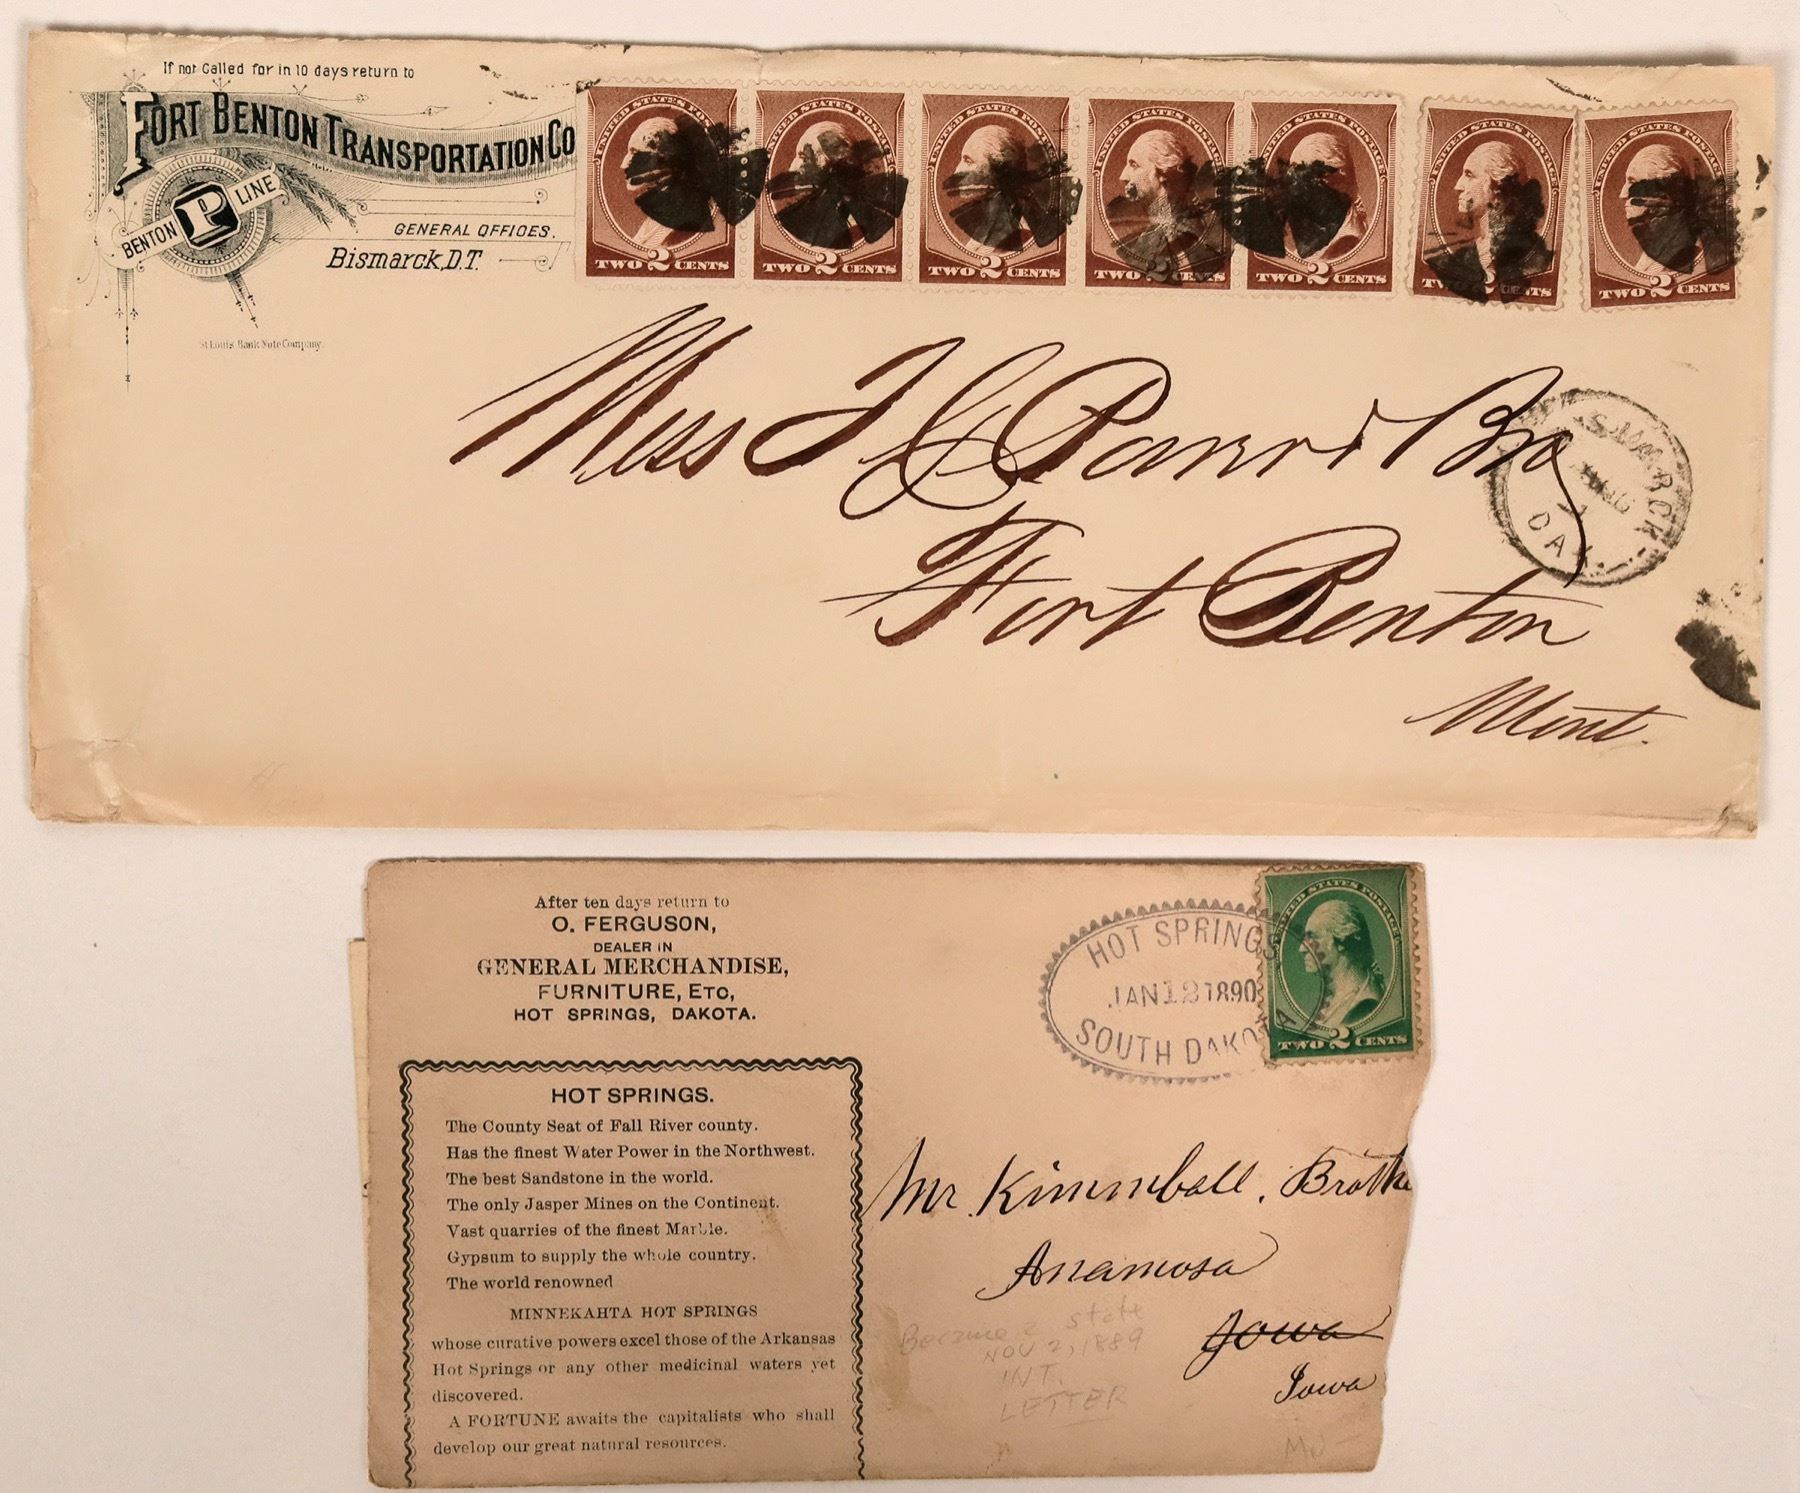 If not Called for in 10 days return to
FORT BENTON TRANSPORTATION CO
BENTON P LINE
GENERAL OFFICES.
Bismarck, D.T.
St Louis Bank Note Company.
UNITED STATES POSTAGE
TWO 2 CENTS
UNITED STATES POSTAGE
TWO 2 CENTS
UNITED STATES POSTAGE
TWO 2 CENTS
UNITED STATES POSTAGE
TWO 2 CENTS
UNITED STATES POSTAGE
TWO 2 CENTS
UNITED STATES POSTAGE
TWO 2 CENTS
UNITED STATES POSTAGE
TWO 2 CENTS
BISMARCK
DAK.
Mess I G
Bro
Fort Benton
Mont.
After ten days return to
O. FERGUSON,
DEALER IN
GENERAL MERCHANDISE,
FURNITURE, ETC,
HOT SPRINGS, DAKOTA.
HOT SPRINGS.
The County Seat of Fall River county.
Has the finest Water Power in the Northwest.
The best Sandstone in the world.
The only Jasper Mines on the Continent.
Vast quarries of the finest Marble.
Gypsum to supply the whole country.
The world renowned
MINNEKAHTA HOT SPRINGS
whose curative powers excel those of the Arkansas
Hot Springs or any other medicinal waters yet
discovered.
A FORTUNE awaits the capitalists who shall
develop our great natural resources.
HOT SPRINGS
JAN 12 1890
SOUTH DAKOTA
UNITED STATES POSTAGE
TWO 2 CENTS
Mr. Kimmball, Brothe
Anamosa
Iowa
Iowa
Became a state
NOV 2, 1889
INT.
LETTER